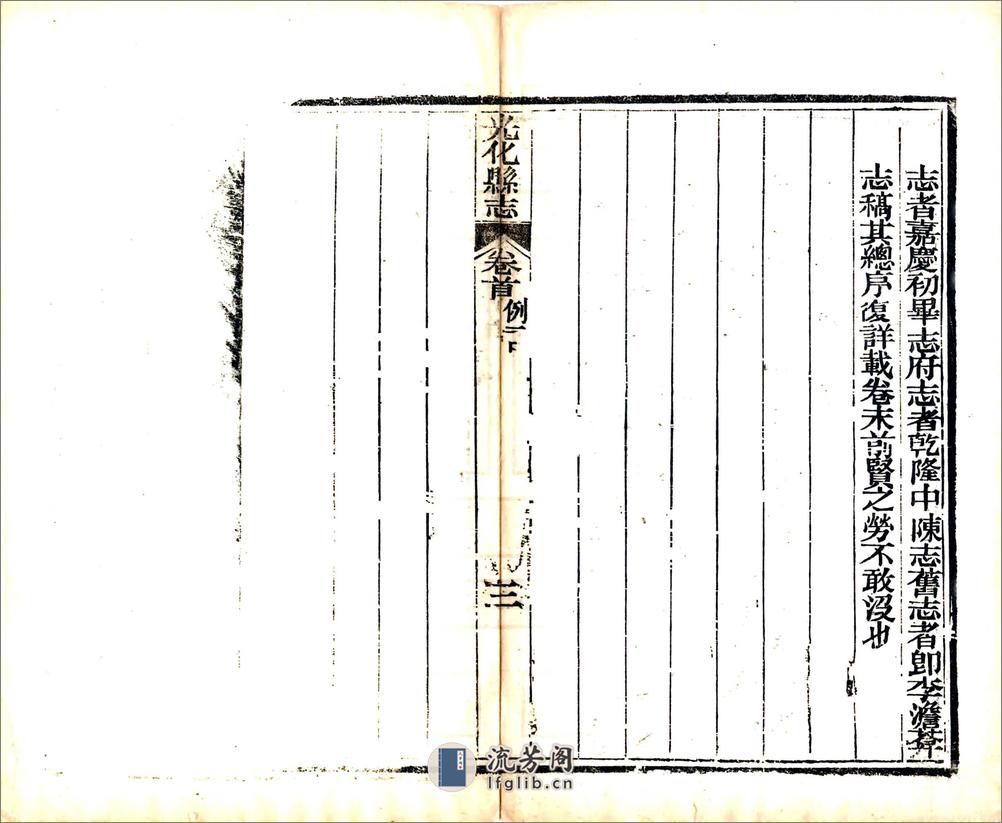 志者嘉慶初畢志府志者乾隆中陳志舊志者卽李澹菴
志稿其總序復詳載卷末前賢之勞不敢沒也
光化縣志
卷首
例
三
流芳阁
lfglib.cn